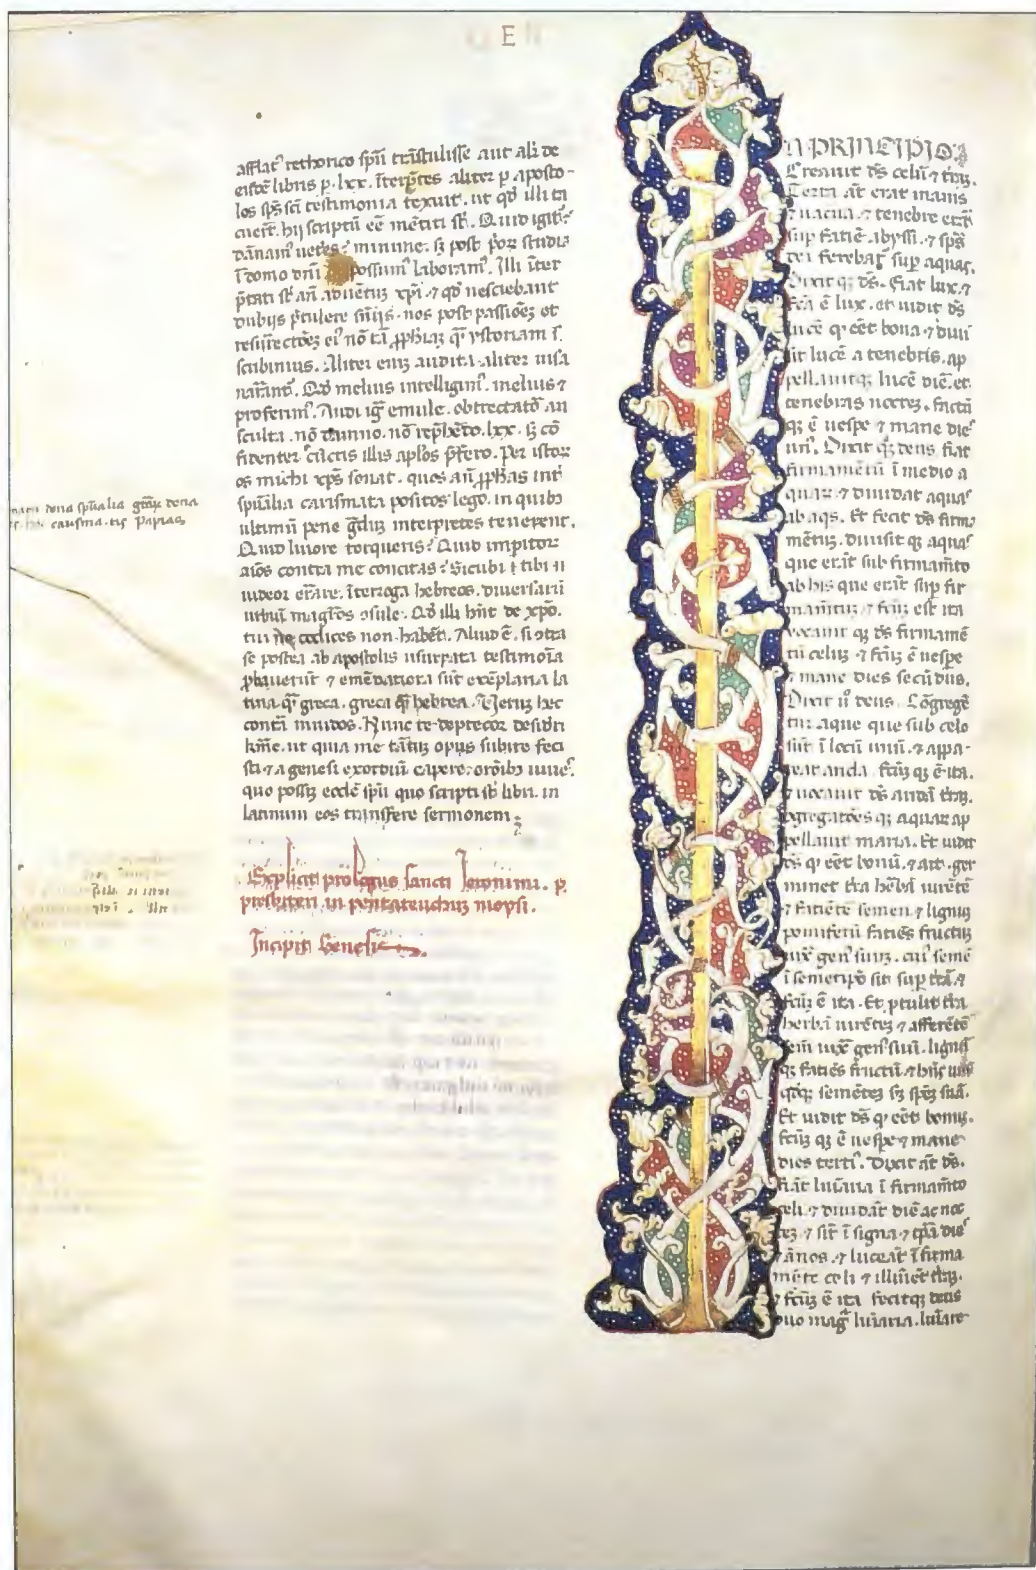 E
afflat᷒ rethorico sp̄u trāstulisse aut alr̄ de
eisdē libris p. lxx. īterp̄tes aliter p aposto-
los sp̄s sc̄i testimonia texuit. ut qd̄ illi ta
cuerīt. hij scriptū eē mētiti st̄. Quid igit᷒?
dānam᷒ uetes? minime. sꝫ post p̄oꝝ studia
ī domo dn̄i possum᷒ laboram᷒. Illi īter
p̄tati st̄ an̄ aduētuꝫ xp̄i. ⁊ qd̄ nesciebant
dubijs p̄tulere sn̄ijs. nos post passiōeꝫ et
resur̄ectōeꝫ ei᷒ nō tā ꝓph̄iaꝫ qm̄ ystoriam s̄.
scribimus. Aliter eniꝫ audita. aliter uisa
narrant᷒. Qd̄ melius intelligim᷒. melius ⁊
proferim᷒. Audi igr̄ emule. obtrectatōr au
sculta. nō damno. nō rep̄hēdo. lxx. sꝫ cō
fidenter cūctis illis apl̄os p̄fero. Per istoꝝ
os michi xp̄s sonat. quos an̄ ꝓph̄as int̄
sp̄ualia carismata positos lego. in quibꝫ
ultimū pene gᷓduꝫ interpretes tenerent.
Quid liuore torqueris? Quid impitoꝝ
aīos contra me concitas? Sicubi ī tibi
uideor errare. īterroga hebreos. diuersaꝝ
urbiū magr̄os ɔsule. Qd̄ illi hn̄t de xp̄o.
tui codices non habēt. Aliud ē. si ɔtra
se postea ab apostolis usurpata testimoīa
ꝓbauerūt ⁊ emēdatiora sūt exēplaria la
tina qᷓ greca. greca qᷓ hebrea. Veruꝫ hec
contᷓ inuidos. Nunc te deprecor desidri
km̄e. ut quia me tātuꝫ opus subire feci
sti ⁊ a genesi exordiū capere. orōibꝫ iuues.
quo possiꝫ eodē sp̄u quo scripti st̄ libri. in
latinum eos transferre sermonem.
dona sp̄ualia
carisma. tis Papias
Explicit prologus sancti Ieronimi. p.
presbiteri in pentateuchuꝫ moysi.
Incipit Genesis
N PRINCIPIO
Creauit ds̄ celū ⁊ trᷓꝫ.
Terra āt erat inanis
⁊ uacua. ⁊ tenebre erāt
sup faciē abyssi. ⁊ sps̄
dei ferebat᷒ sup aquas.
Dixit qꝫ ds̄. Fiat lux. ⁊
fc̄a ē lux. et uidit ds̄
lucē qꝫ eēt bona ⁊ diui
sit lucē a tenebris. ap
pellauitqꝫ lucē diē. et
tenebras nocteꝫ. factū
qꝫ ē uespe ⁊ mane dies
un᷒. Dixit qꝫ deus fiat
firmamētū ī medio a
quaꝝ ⁊ diuidat aquas
ab aqs. Et fecit ds̄ firma
mētuꝫ. diuisit qꝫ aquas
que erāt sub firmamēto
ab his que erāt sup fir
mam̄tuꝫ ⁊ fcm̄ est ita
uocauit qꝫ ds̄ firmamē
tū celuꝫ ⁊ fcm̄ ē uespe
⁊ mane dies secūdus.
Dixit u̇ deus. Cōgregē
tur aque que sub celo
sūt ī locū unū. ⁊ appa-
reat arida. fcm̄ qꝫ ē ita.
⁊ uocauit ds̄ aridā trᷓꝫ.
ɔgregatōes qꝫ aquaꝝ ap
pellauit maria. Et uidit
ds̄ qꝫ eēt bonū. ⁊ ait. ger
minet trᷓ herbā uirētē
⁊ faciētē semen ⁊ lignuꝫ
pomiferū faciēs fructuꝫ
iuxᷓ gen᷒ suuꝫ. cui᷒ semē
ī semetipō sit sup trᷓꝫ. ⁊
fcm̄ ē ita. Et ptulit trᷓ
herbā uirēteꝫ ⁊ afferētē
sem̄ iuxᷓ gen᷒ suū. lignū
qꝫ faciēs fructū ⁊ hn̄s unū
qdqꝫ semēteꝫ scꝫ sp̄eꝫ suā.
Et uidit ds̄ qꝫ eēt bonuꝫ.
fcm̄ qꝫ ē uespe ⁊ mane
dies terti᷒. Dixit āt ds̄.
fiāt luīaria ī firmam̄to
celi. ⁊ diuidāt diē ac noc
teꝫ. ⁊ sīt ī signa ⁊ tp̄a dies
⁊ ānos. ⁊ luceāt ī firma
mēto celi ⁊ illuīent trᷓꝫ.
⁊ fcm̄ ē ita fecitqꝫ deus
duo magᷓ luīaria. luīare